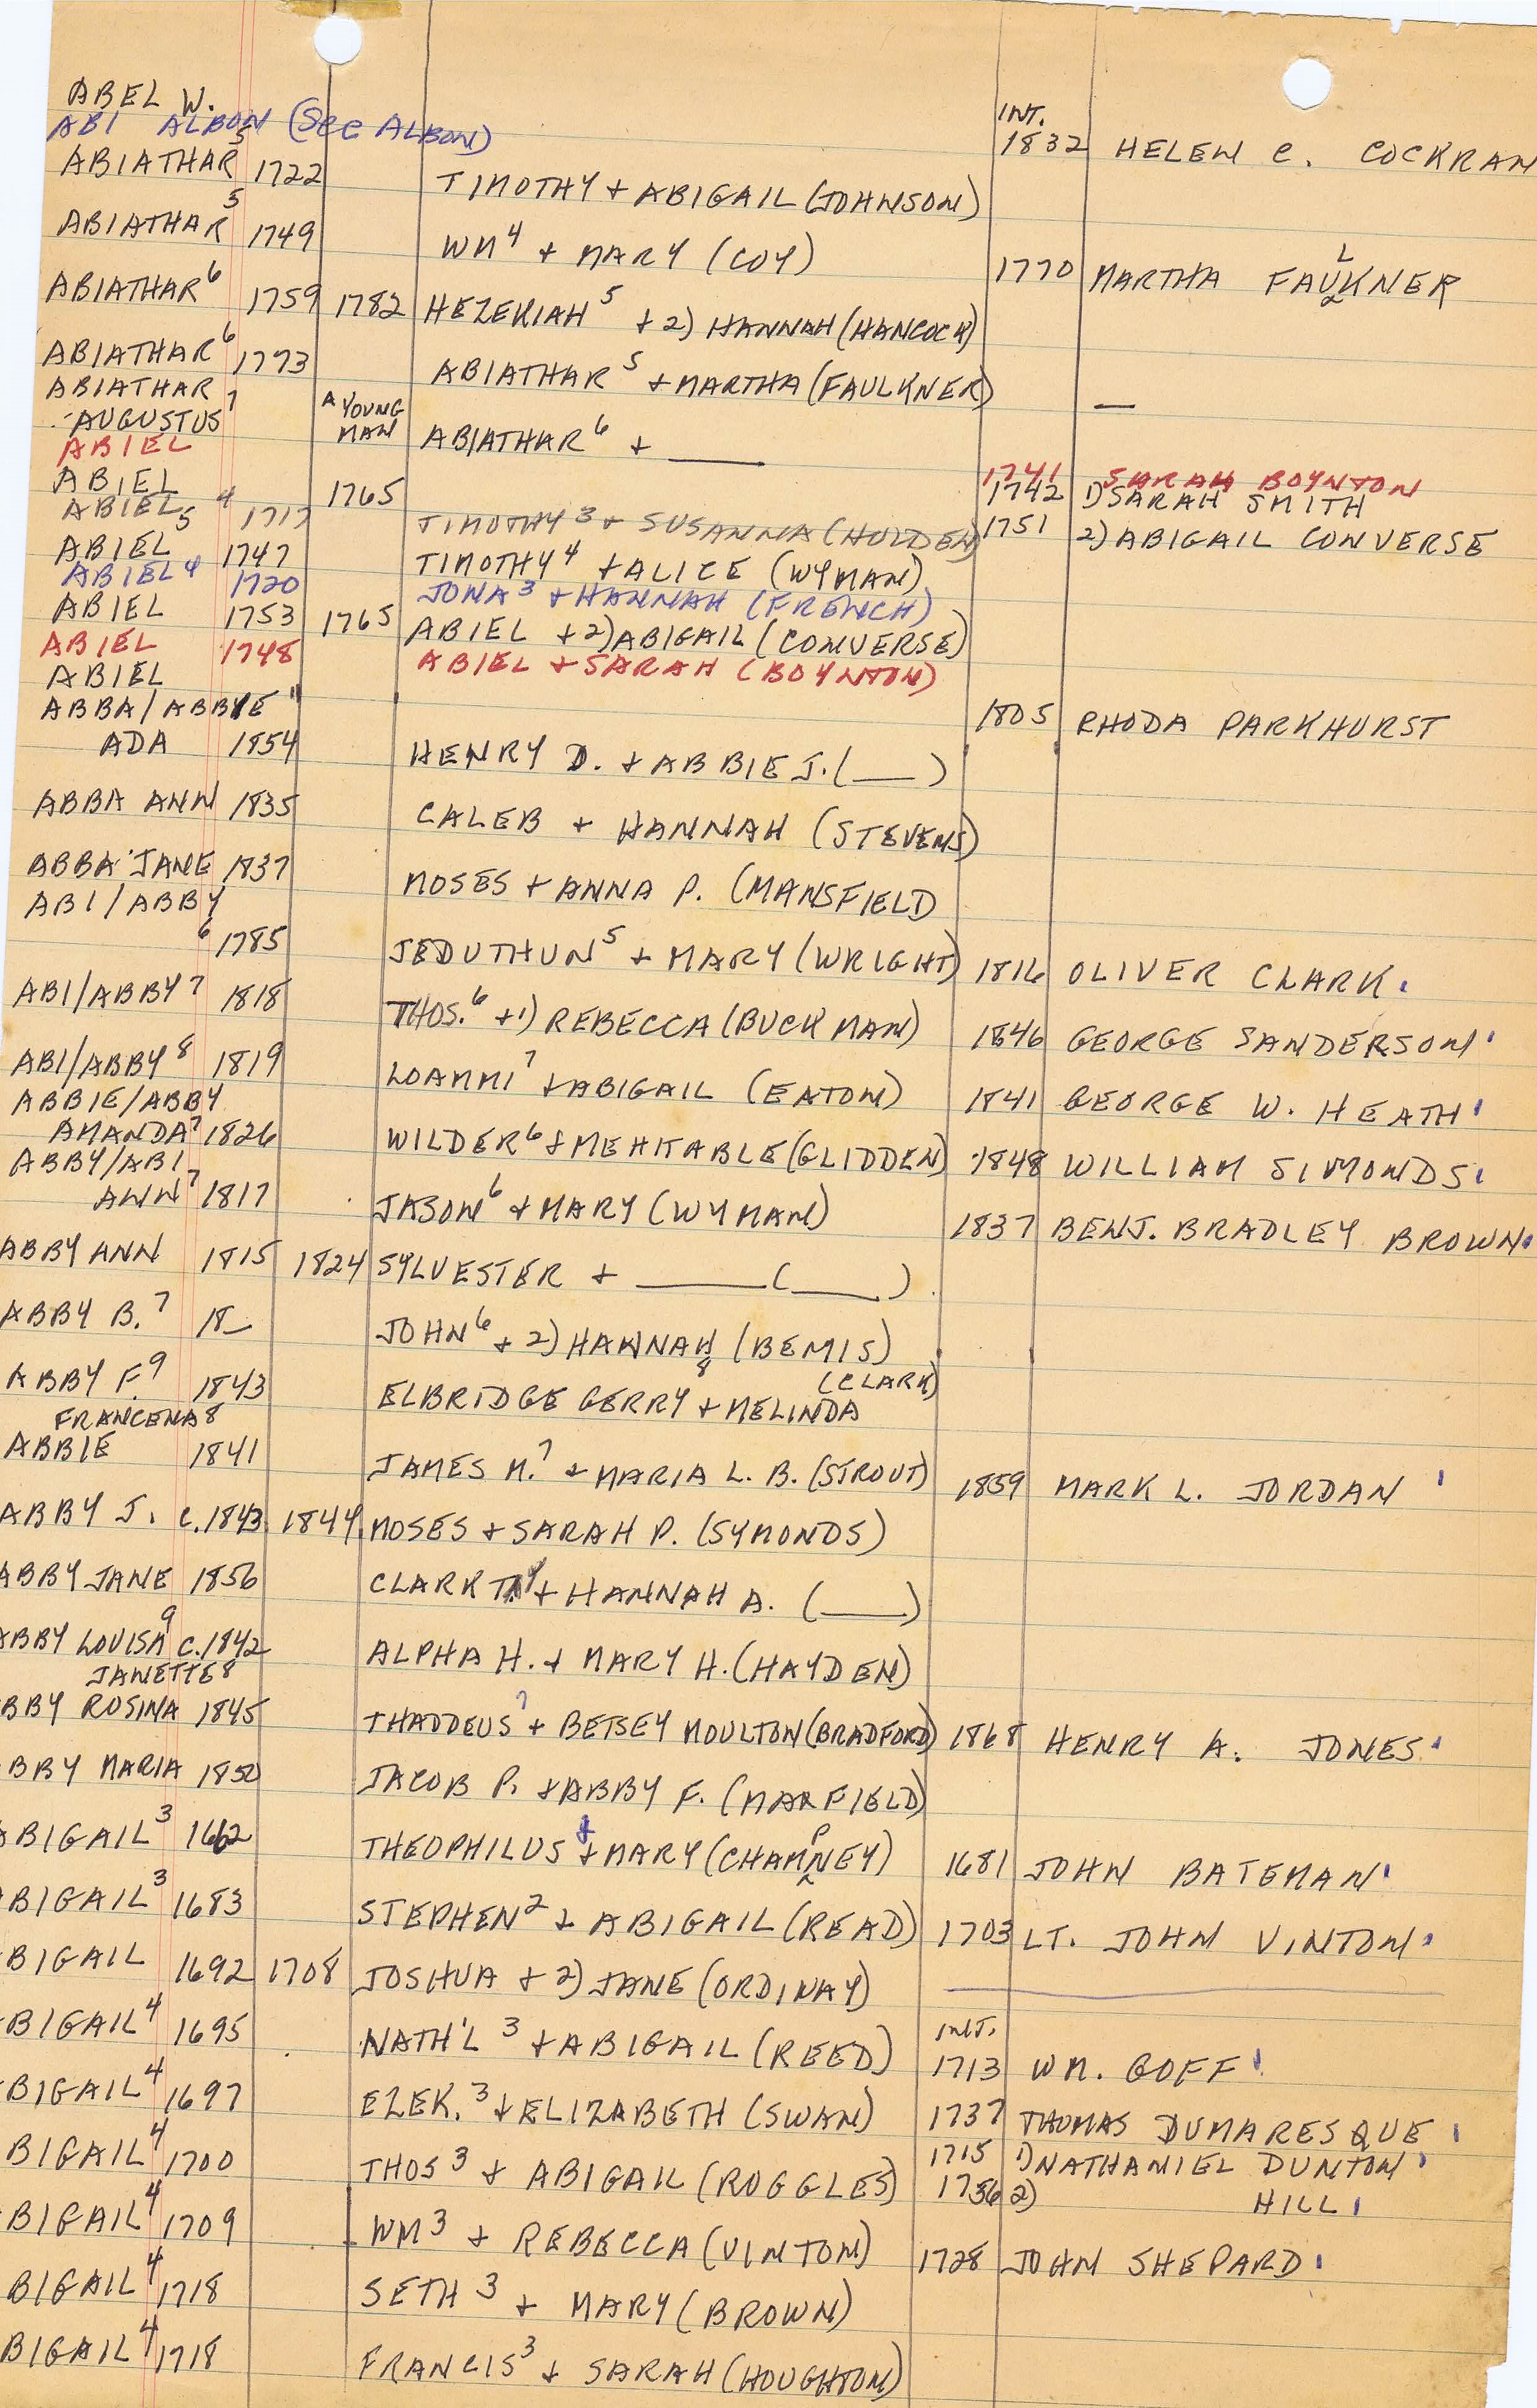 ABEL W. INT. 1832 HELEN C. COCKRAN
ABI ALBON (See ALBON)
ABIATHAR 5 1722 TIMOTHY + ABIGAIL (JOHNSON)
ABIATHAR 5 1749 WM 4 + MARY (COY) 1770 MARTHA FAULKNER
ABIATHAR 6 1759 1782 HEZEKIAH 5 + 2) HANNAH (HANCOCK)
ABIATHAR 6 1773 ABIATHAR 5 + MARTHA (FAULKNER) —
ABIATHAR
AUGUSTUS 7 A YOUNG MAN ABIATHAR 6 + ___
ABIEL 1741 SARAH BOYNTON
ABIEL 1765 1742 1) SARAH SMITH
ABIEL 4 1717 TIMOTHY 3 + SUSANNA (HOLDEN) 1751 2) ABIGAIL CONVERSE
ABIEL 5 1747 TIMOTHY 4 + ALICE (WYMAN)
ABIEL 4 1720 JONA 3 + HANNAH (FRENCH)
ABIEL 1753 1765 ABIEL + 2) ABIGAIL (CONVERSE)
ABIEL 1748 ABIEL + SARAH (BOYNTON)
ABIEL 1805 RHODA PARKHURST
ABBA/ABBYE "
ADA 1854 HENRY D. + ABBIE J. (___)
ABBA ANN 1835 CALEB + HANNAH (STEVENS)
ABBA JANE 1837 MOSES + ANNA P. (MANSFIELD
ABI/ABBY
6 1785 JEDUTHUN 5 + MARY (WRIGHT) 1816 OLIVER CLARK
ABI/ABBY 7 1818 THOS. 6 + 1) REBECCA (BUCKMAN) 1846 GEORGE SANDERSON
ABI/ABBY 8 1819 LOAMMI 7 + ABIGAIL (EATON) 1841 GEORGE W. HEATH
ABBIE/ABBY
AMANDA 7 1826 WILDER 6 + MEHITABLE (GLIDDEN) 1848 WILLIAM SIMONDS
ABBY/ABI
ANN 7 1817 JASON 6 + MARY (WYMAN) 1837 BENJ. BRADLEY BROWN
ABBY ANN 1815 1824 SYLVESTER + ___ (___)
ABBY B. 7 18_ JOHN 6 + 2) HANNAH (BEMIS)
ABBY F. 9 1843 ELBRIDGE GERRY 8 + MELINDA (CLARK)
FRANCENA 8
ABBIE 1841 JAMES M. 7 + MARIA L. B. (STROUT) 1859 MARK L. JORDAN
ABBY J. c. 1843 1844 MOSES + SARAH P. (SYMONDS)
ABBY JANE 1856 CLARK + HANNAH A. (___)
ABBY LOUISA 9 c. 1842 ALPHA H. + MARY H. (HAYDEN)
JANETTE 8
BBY ROSINA 1845 THADDEUS 7 + BETSEY MOULTON (BRADFORD) 1868 HENRY A. JONES
BBY MARIA 1850 JACOB P. + ABBY F. (MARFIELD)
BIGAIL 3 1662 THEOPHILUS + MARY (CHAMPNEY) 1681 JOHN BATEMAN
BIGAIL 3 1683 STEPHEN 2 + ABIGAIL (READ) 1703 LT. JOHN VINTON
BIGAIL 1692 1708 JOSHUA + 2) JANE (ORDINAY)
BIGAIL 4 1695 NATH'L 3 + ABIGAIL (REED) INT. 1713 WM. GOFF
BIGAIL 4 1697 EZEK. 3 + ELIZABETH (SWAN) 1737 THOMAS DUMARESQUE
BIGAIL 4 1700 THOS 3 + ABIGAIL (RUGGLES) 1715 1) NATHANIEL DUNTON
1736 2) HILL
BIGAIL 4 1709 WM 3 + REBECCA (VINTON) 1728 JOHN SHEPARD
BIGAIL 4 1718 SETH 3 + MARY (BROWN)
BIGAIL 4 1718 FRANCIS 3 + SARAH (HOUGHTON)